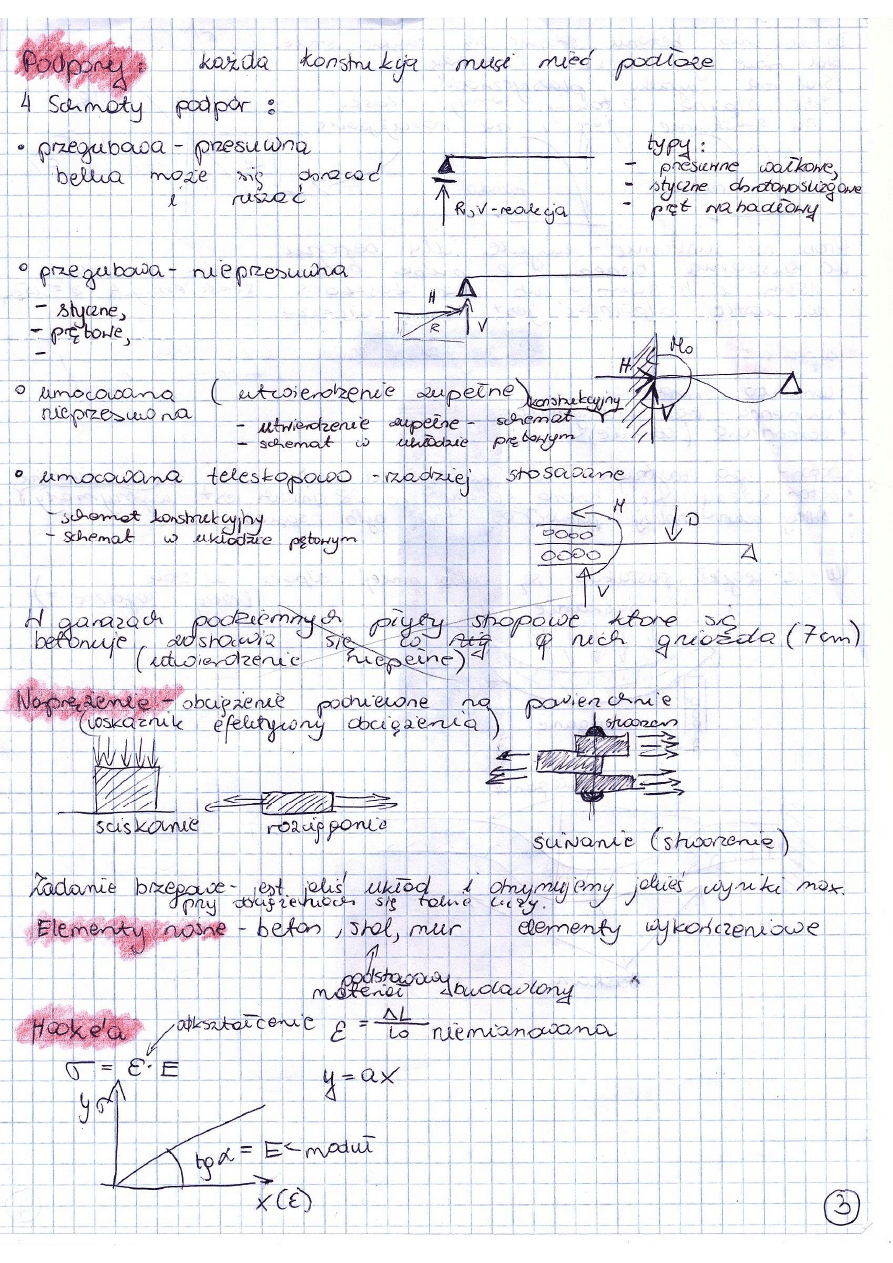 Podpory: każda konstrukcja musi mieć podłoże
4 Schmaty podpór :
• przegubowa - przesuwna
belka może się obracać
i ruszać
R, V - reakcja
typy:
- przesuwne wałkowe,
- styczne obrotowoślizgowe
- pręt wahadłowy
• przegubowa - nieprzesuwna
- styczne,
- prętowe,
-
H
R
V
• umocowana (utwierdzenie zupełne)
nieprzesuwna
- utwierdzenie zupełne - schemat konstrukcyjny
- schemat w układzie prętowym
H
M₀
V
• umocowana teleskopowo - rzadziej stosowane
- schemat konstrukcyjny
- schemat w układzie pętowym
M
V
W garażach podziemnych płyty stropowe które się
betonuje dostawia się w nich gniazda (7cm)
(utwierdzenie niepełne)
Naprężenie - obciążenie podzielone na powierzchnie
(wskaźnik efektywny obciążenia)
sworzeń
sciskanie
rozciąganie
ścinanie (sworzenie)
Zadanie brzegowe - jest jakiś układ i otrzymujemy jakieś wyniki max.
przy obciążeniach się liczy.
Elementy nośne - beton, stal, mur elementy wykończeniowe
podstawowy
materiał budowlany
Hooke'a
odkształcenie ε = ΔL/L₀ niemianowana
σ = ε · E
y = ax
y σ
tgα = E ← moduł
x (ε)
3